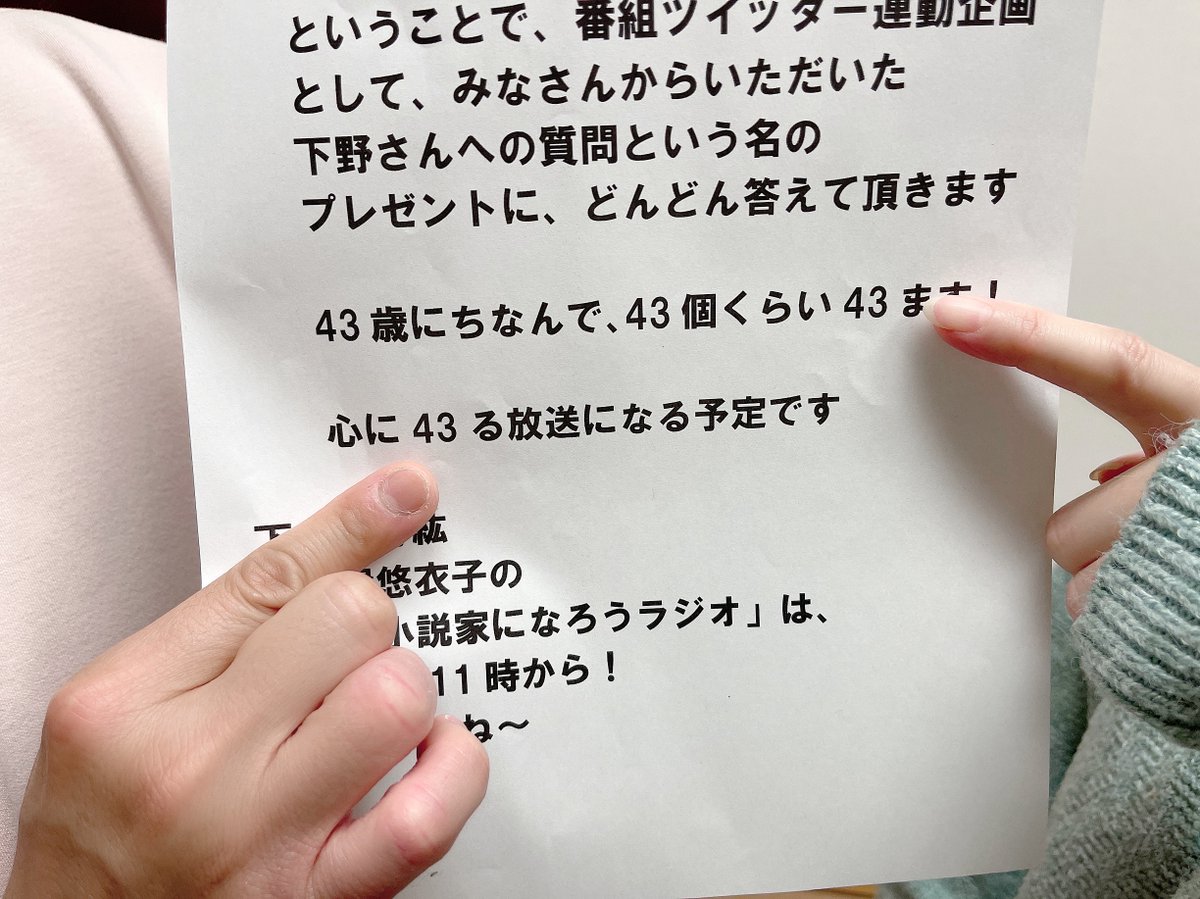 ということで、番組ツイッター連動企画
として、みなさんからいただいた
下野さんへの質問という名の
プレゼントに、どんどん答えて頂きます
43歳にちなんで、43個くらい43ます!
心に43る放送になる予定です
下 紘
悠衣子の
小説家になろうラジオ」は、
11時から!
ね〜